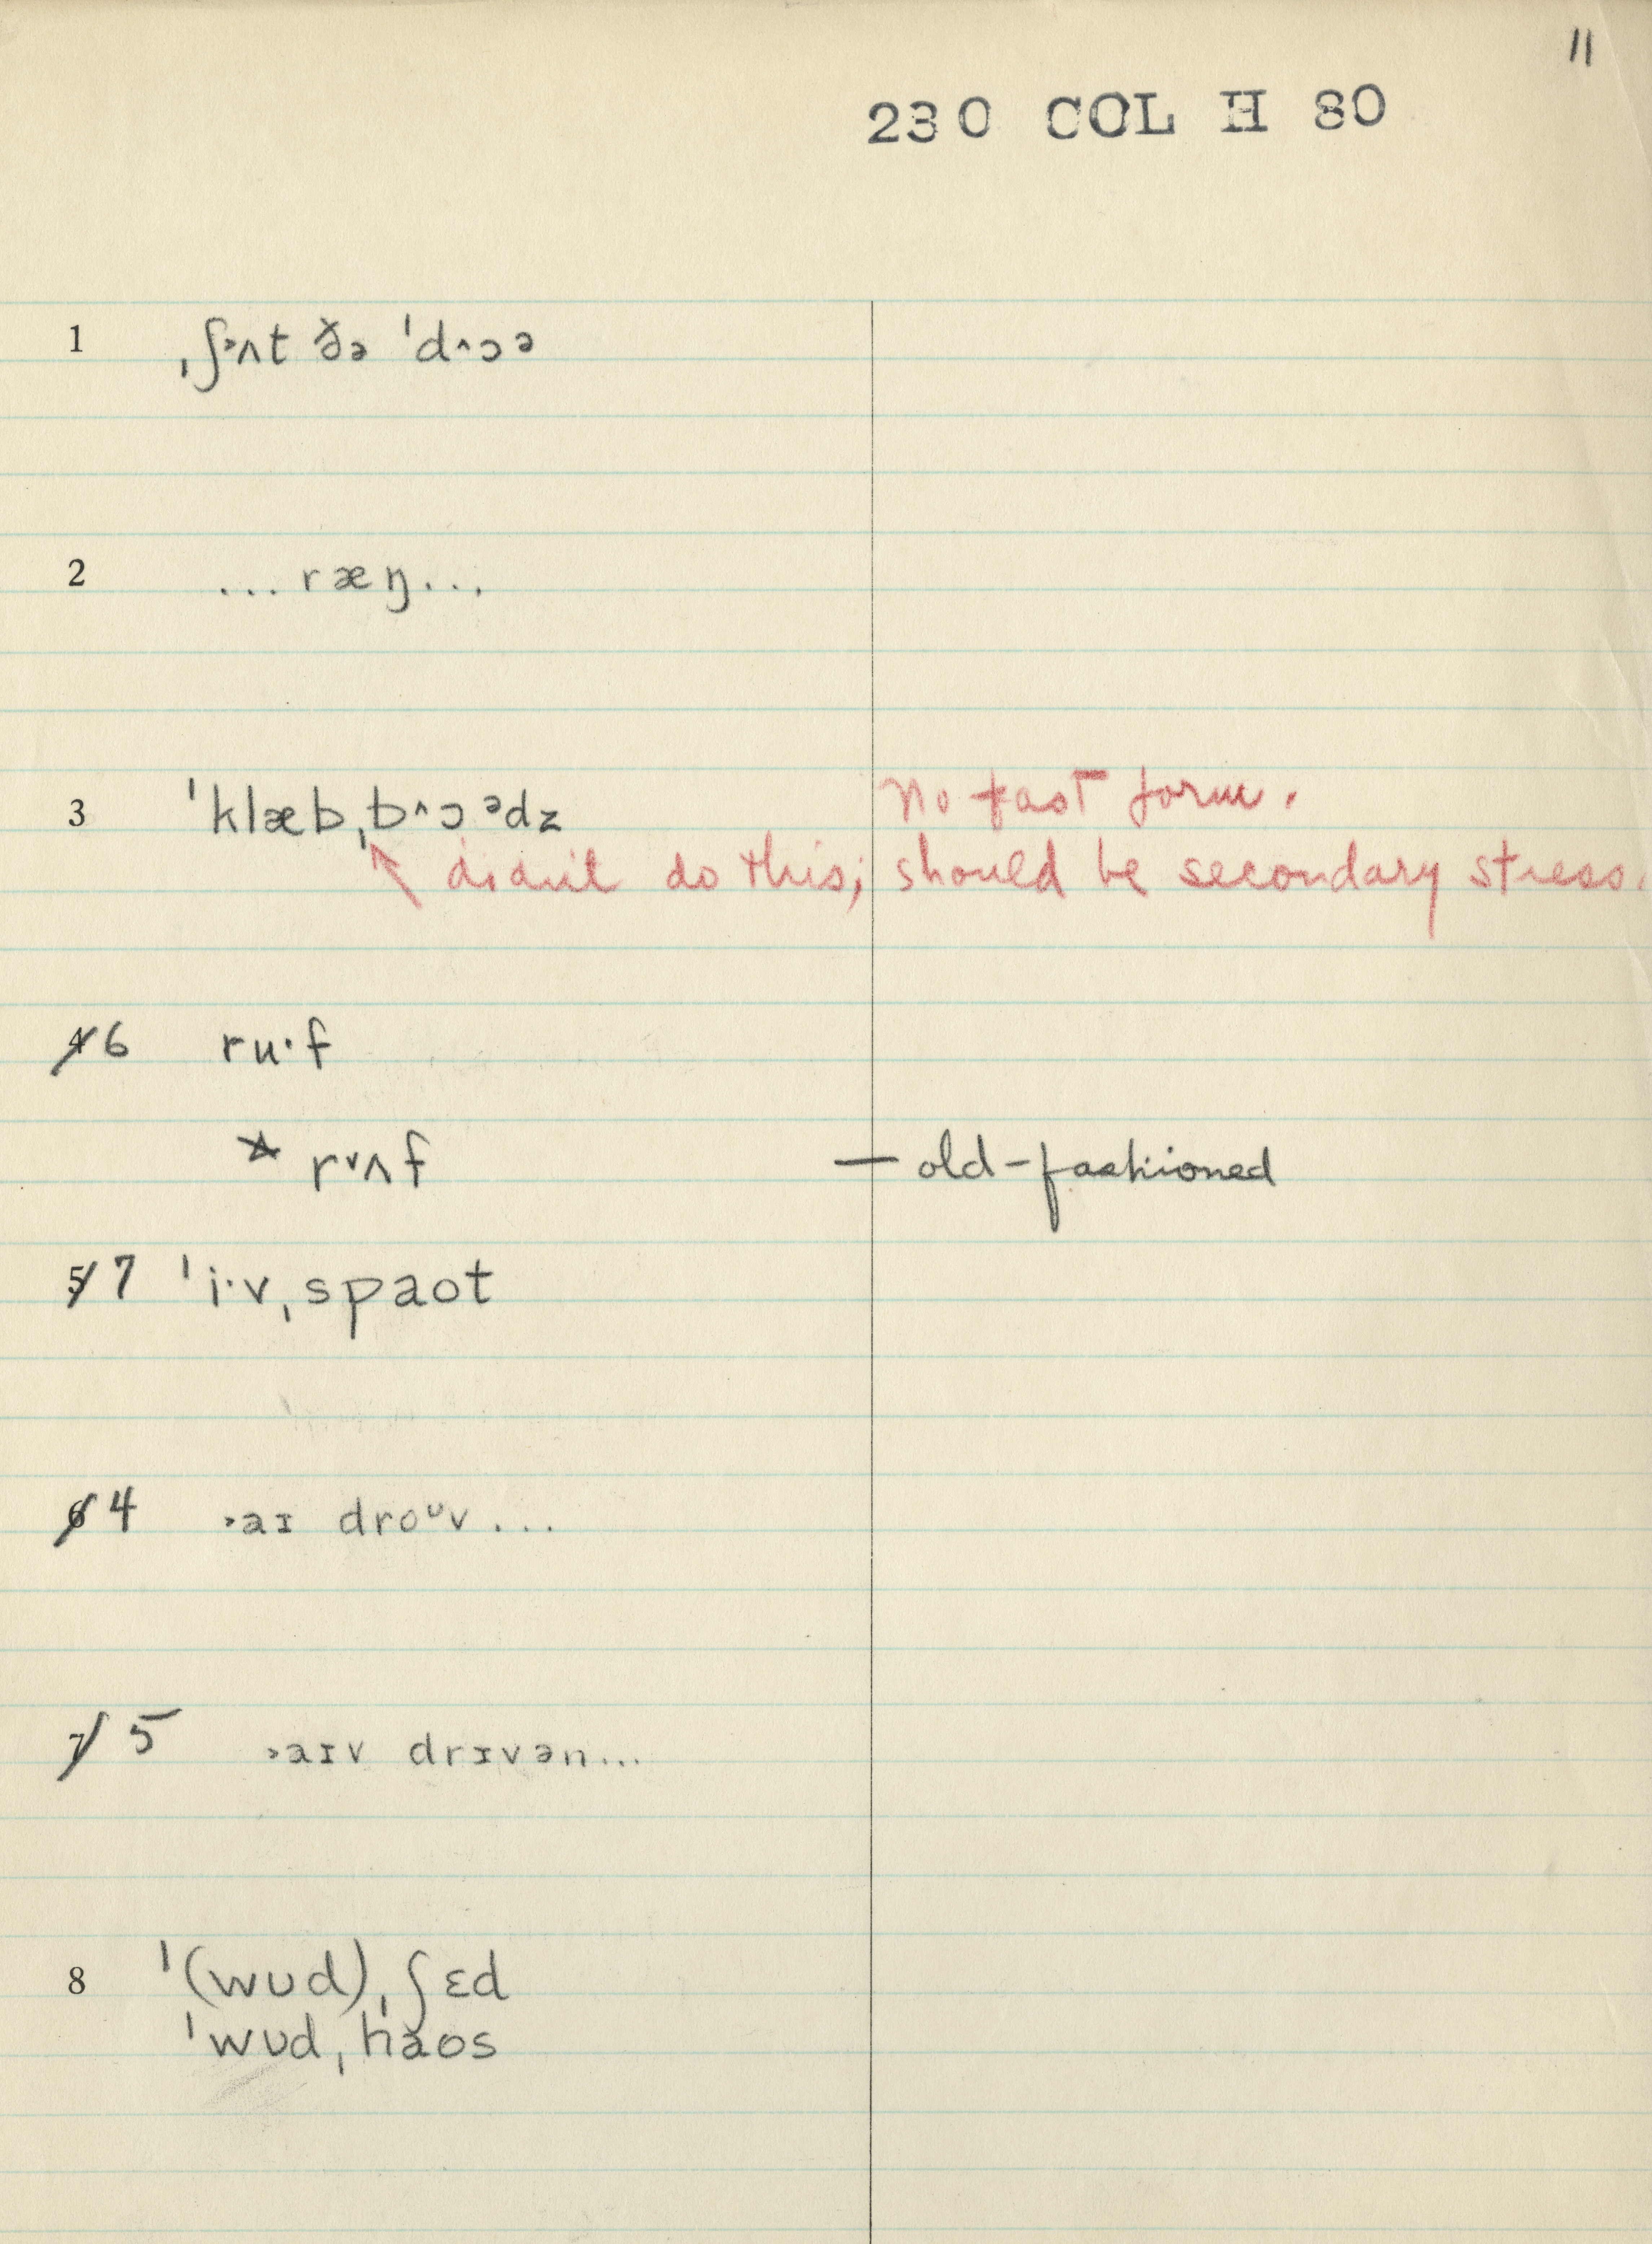 11
230 COL H 80
1 ˌʃ˃ʌt ðə ˈd^ɔᵊ
2 ...ræŋ...
3 ˈklæbˌb^ɔᵊdz no fast form.
↖ didn't do this; should be secondary stress.
4 6 ru·f
* r˅ʌf — old-fashioned
5 7 ˈi·vˌspaot
6 4 ˃aɪ droᶷv...
7 5 ˃aɪv drɪvən...
8 ˈ(wʊd)ˌʃɛd
ˈwʊdˌhaos